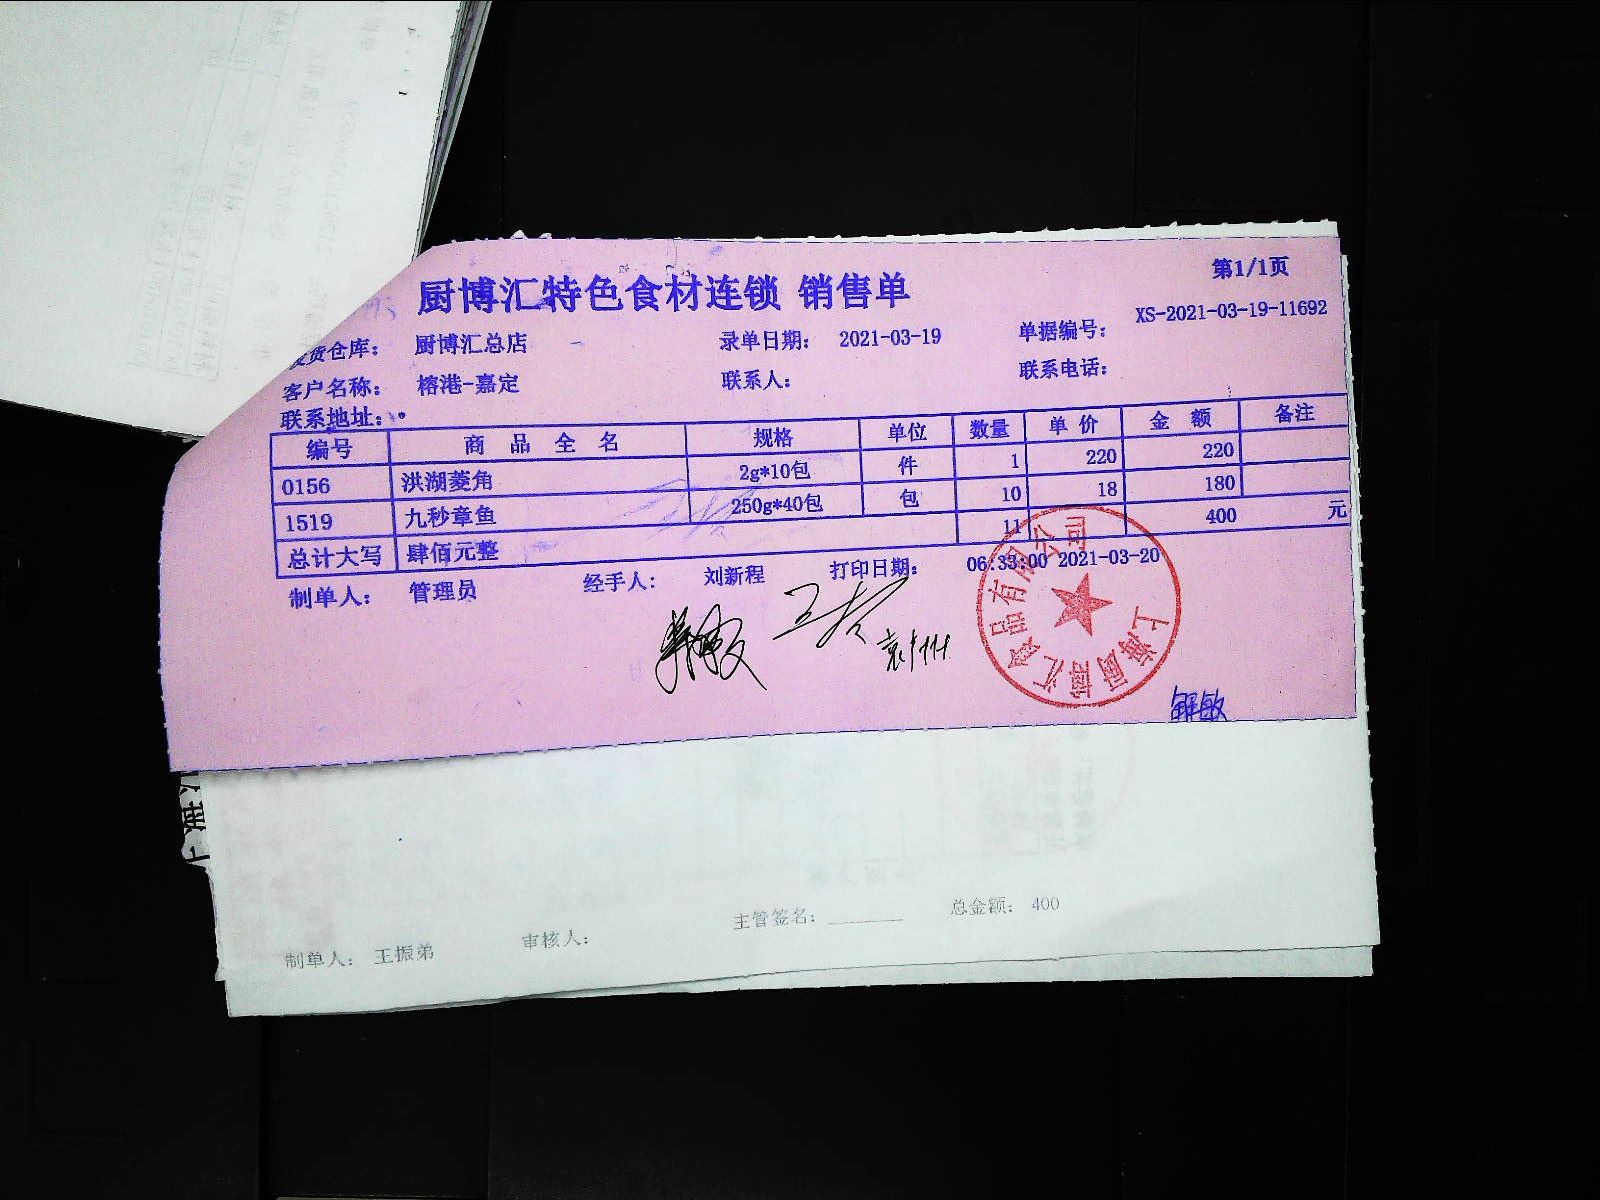 厨博汇特色食材连锁 销售单
第1/1页
发货仓库： 厨博汇总店 录单日期： 2021-03-19 单据编号： XS-2021-03-19-11692
客户名称： 榕港-嘉定 联系人： 联系电话：
联系地址：
编号 商 品 全 名 规格 单位 数量 单 价 金 额 备注
0156 洪湖菱角 2g*10包 件 1 220 220
1519 九秒章鱼 250g*40包 包 10 18 180
总计大写 肆佰元整 11 400 元
制单人： 管理员 经手人： 刘新程 打印日期： 06:33:00 2021-03-20
上海厨博汇食品有限公司
主管签名： 总金额： 400
制单人： 王振弟 审核人：